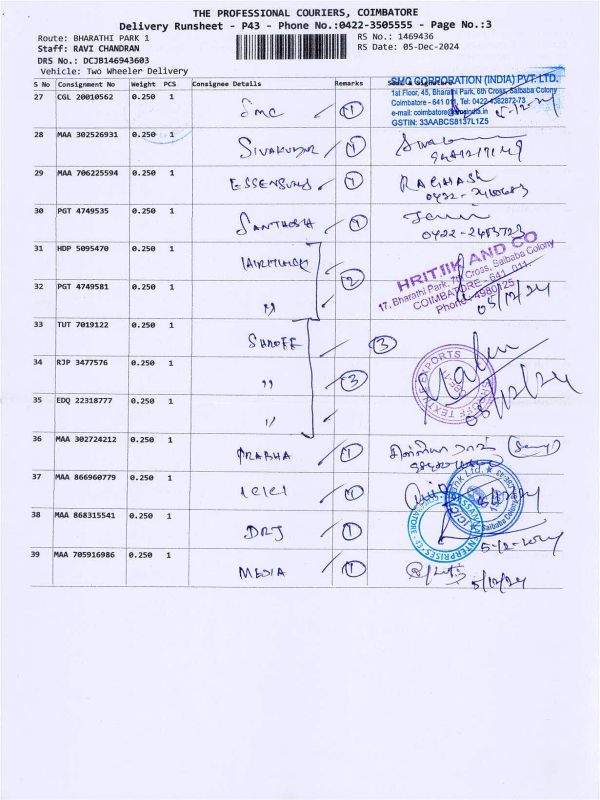 THE PROFESSIONAL COURIERS, COIMBATORE
Delivery Runsheet - P43 - Phone No.:0422-3505555 - Page No.:3
Route: BHARATHI PARK 1
RS No.: 1469436
Staff: RAVI CHANDRAN
RS Date: 05-Dec-2024
DRS No.: DCJB146943603
Vehicle: Two Wheeler Delivery
S No Consignment No Weight PCS Consignee Details Remarks
SMG CORPORATION (INDIA) PVT. LTD.
1st Floor, 45, Bharathi Park, 6th Cross, Saibaba Colony
Coimbatore - 641 011, Tel: 0422-4382872-73
GSTIN: 33AABCS8137L1Z5
27 CGL 20010562 0.250 1 SMC 1
28 MAA 302526931 0.250 1 SIVAKUMAR 1
29 MAA 706225594 0.250 1 1
30 PGT 4749535 0.250 1 SANTHOSH 1
31 HDP 5095470 0.250 1 2
32 PGT 4749581 0.250 1 "
HRITIIK AND CO
17, Bharathi Park, 7th Cross, Saibaba Colony
COIMBATORE - 641 011.
Phone : 4980125
05/12/24
33 TUT 7019122 0.250 1 SHROFF 3
34 RJP 3477576 0.250 1 " 3
35 EDQ 22318777 0.250 1 "
05/12/24
36 MAA 302724212 0.250 1 PRABHA 1
37 MAA 866960779 0.250 1 ICICI 1
38 MAA 868315541 0.250 1 DRJ 1
5-12-2024
39 MAA 705916986 0.250 1 MEDIA 1 5/12/24